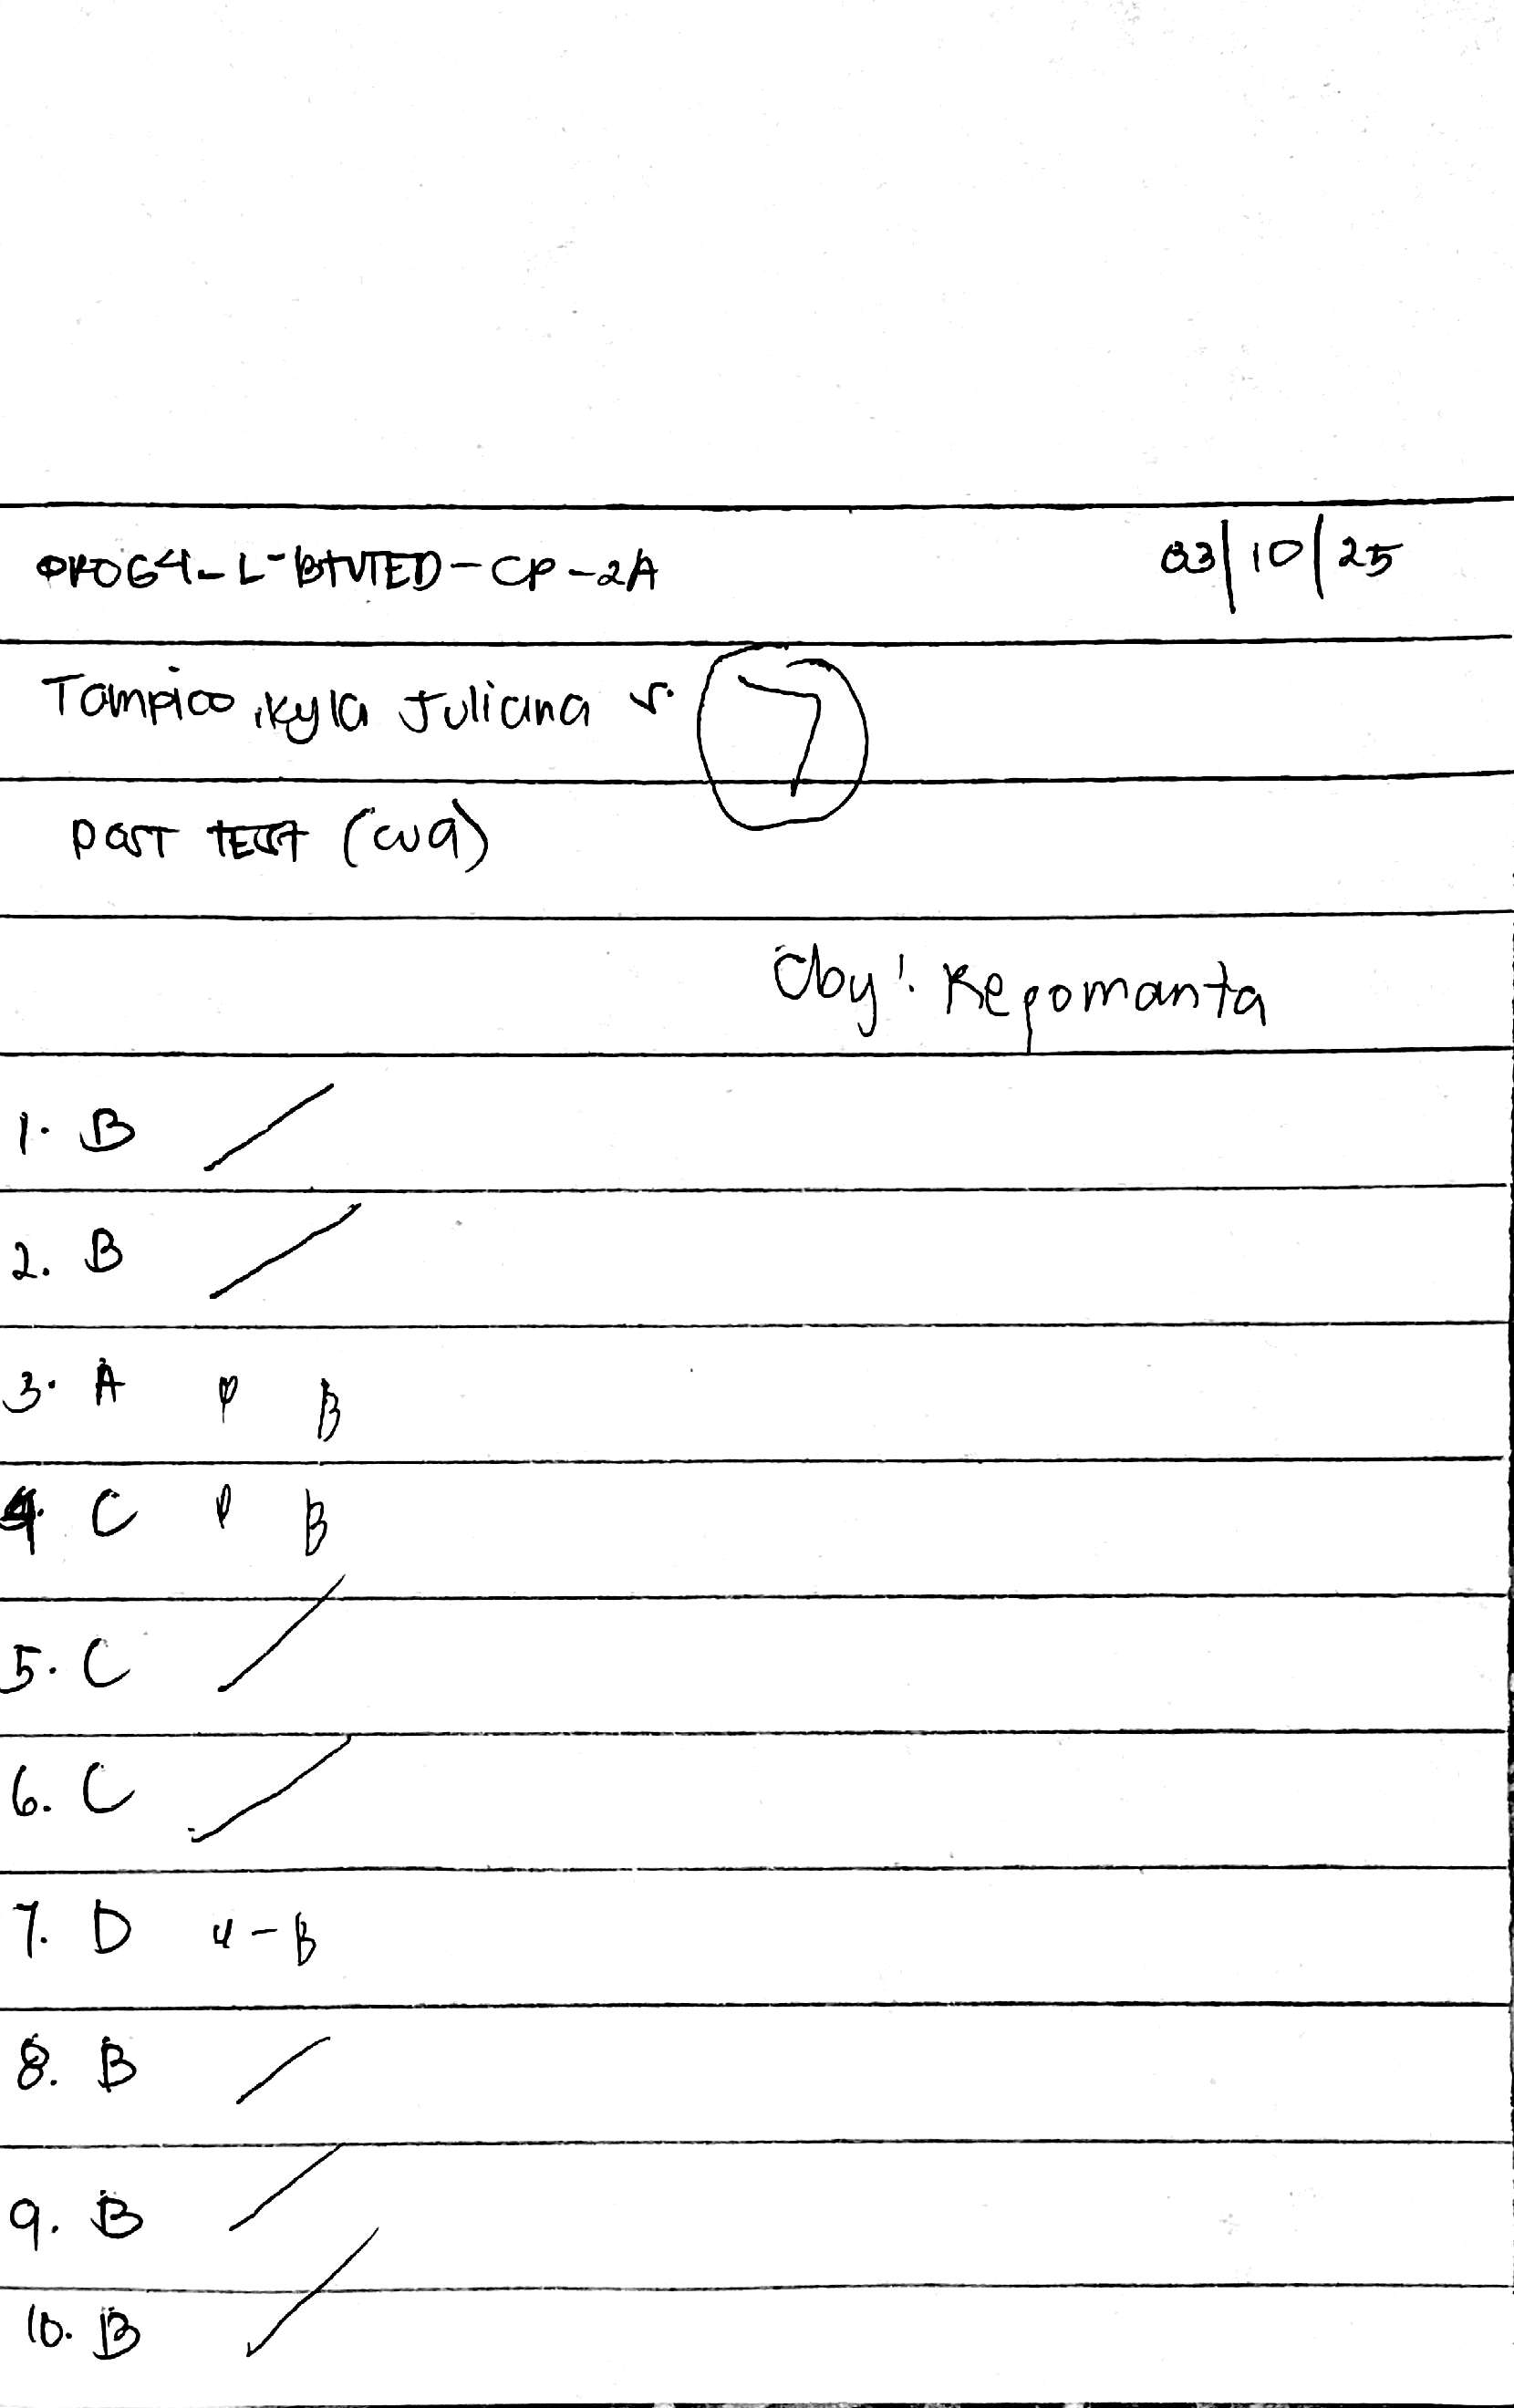 PROG4-L-BTVTED-CP-2A 03/10/25
Tampico, Kyla Juliana S. 7
POST TEST (CW9)
Cby: Repomanta
1. B /
2. B /
3. A B
4. C B
5. C /
6. C /
7. D - B
8. B /
9. B /
10. B /